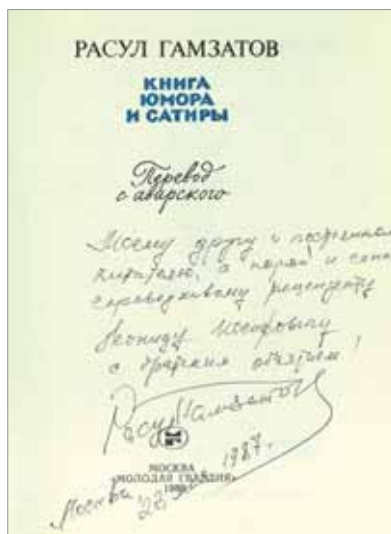 РАСУЛ ГАМЗАТОВ
КНИГА
ЮМОРА
И САТИРЫ
Перевод
с аварского
Моему другу и
читателю, а порой и
справедливому рецензенту
Леониду Иосифовичу
с братским объятием!
Расул Гамзатов
МОСКВА
«МОЛОДАЯ ГВАРДИЯ»
Москва 1987 г.